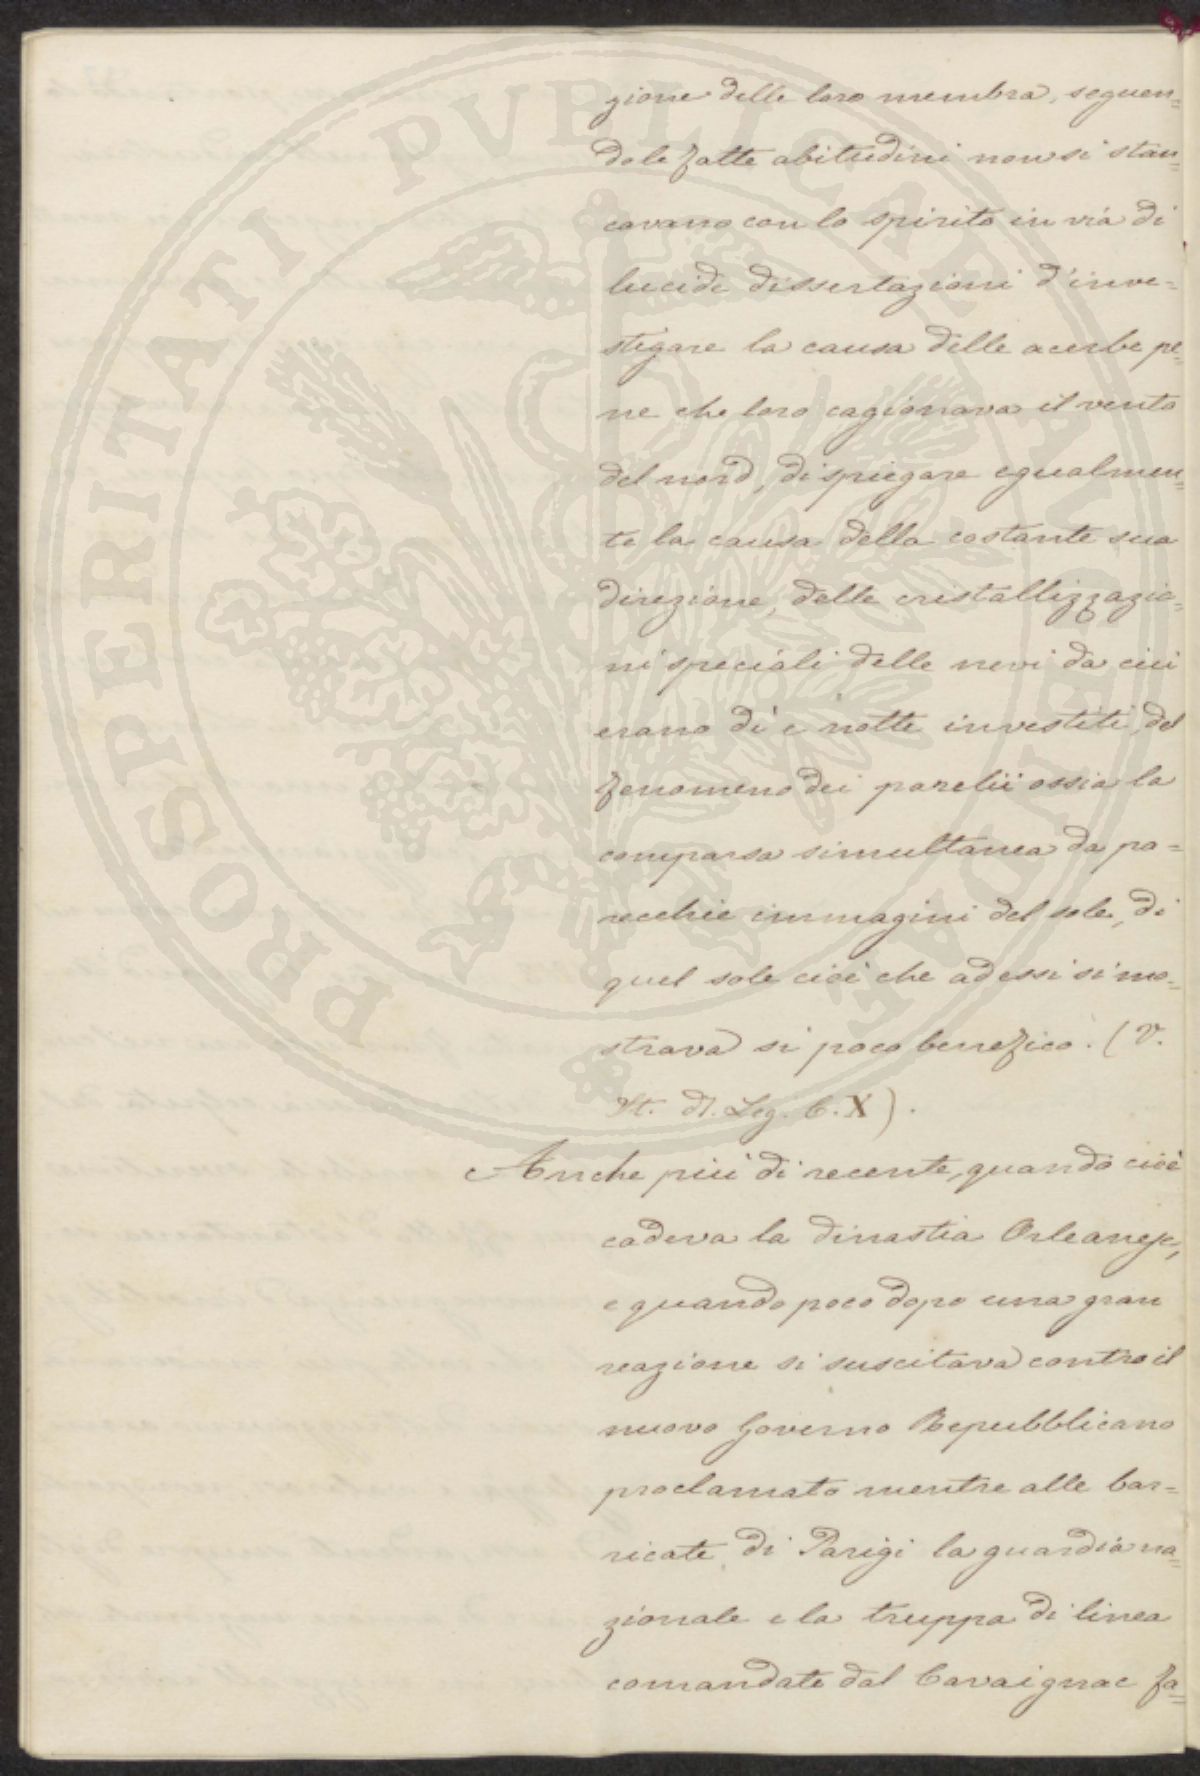 gione delle loro membra, seguen=
do le fatte abitudini non si stan=
cavano con lo spirito in via di
lucide dissertazioni d'inve=
stigare la causa delle acerbe pe=
ne che loro cagionava il vento
del nord, di spiegare egualmen=
te la causa della costante sua
direzione, delle cristallizzazio=
ni speciali delle nevi da cui
erano dì e notte investiti, del
fenomeno dei parelii ossia la
comparsa simultanea da pa=
recchie immagini del sole, di
quel sole cioè che ad essi si mo=
strava sì poco benefico. (V.
St. d. Leg. C. X).
Anche più di recente, quando cioè
cadeva la dinastia Orleanese,
e quando poco dopo una gran
reazione si suscitava contro il
nuovo Governo Repubblicano
proclamato mentre alle bar=
ricate di Parigi la guardia na=
zionale e la truppa di linea
comandate dal Cavaignac fa=
PROSPERITATI PVBLICAE AVGENDAE